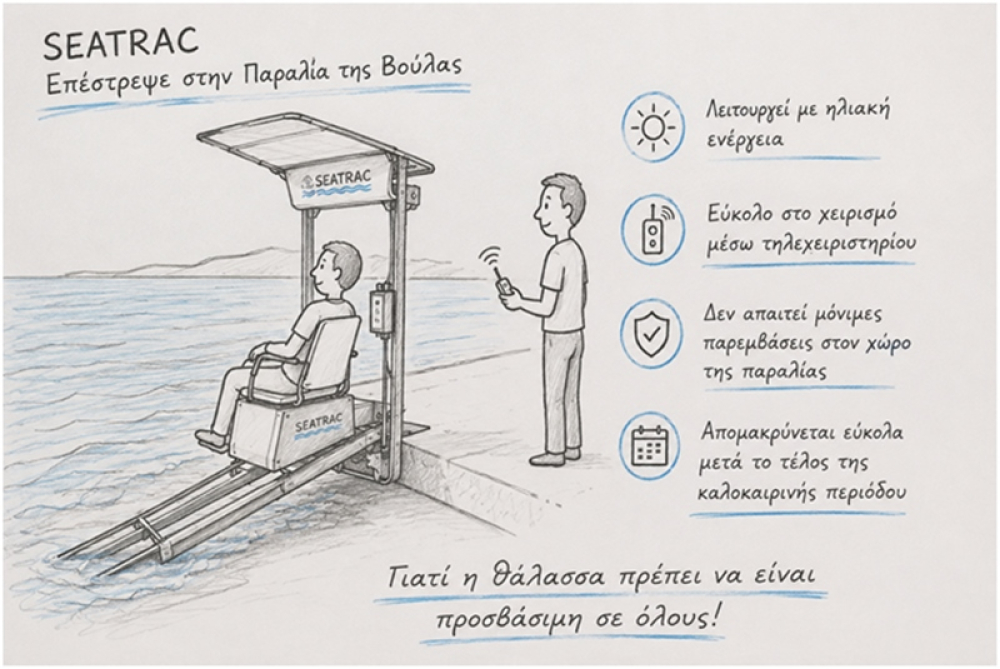 SEATRAC
Επέστρεψε στην Παραλία της Βούλας
SEATRAC
SEATRAC
Λειτουργεί με ηλιακή
ενέργεια
Εύκολο στο χειρισμό
μέσω τηλεχειριστηρίου
Δεν απαιτεί μόνιμες
παρεμβάσεις στον χώρο
της παραλίας
Απομακρύνεται εύκολα
μετά το τέλος της
καλοκαιρινής περιόδου
Γιατί η θάλασσα πρέπει να είναι
προσβάσιμη σε όλους!